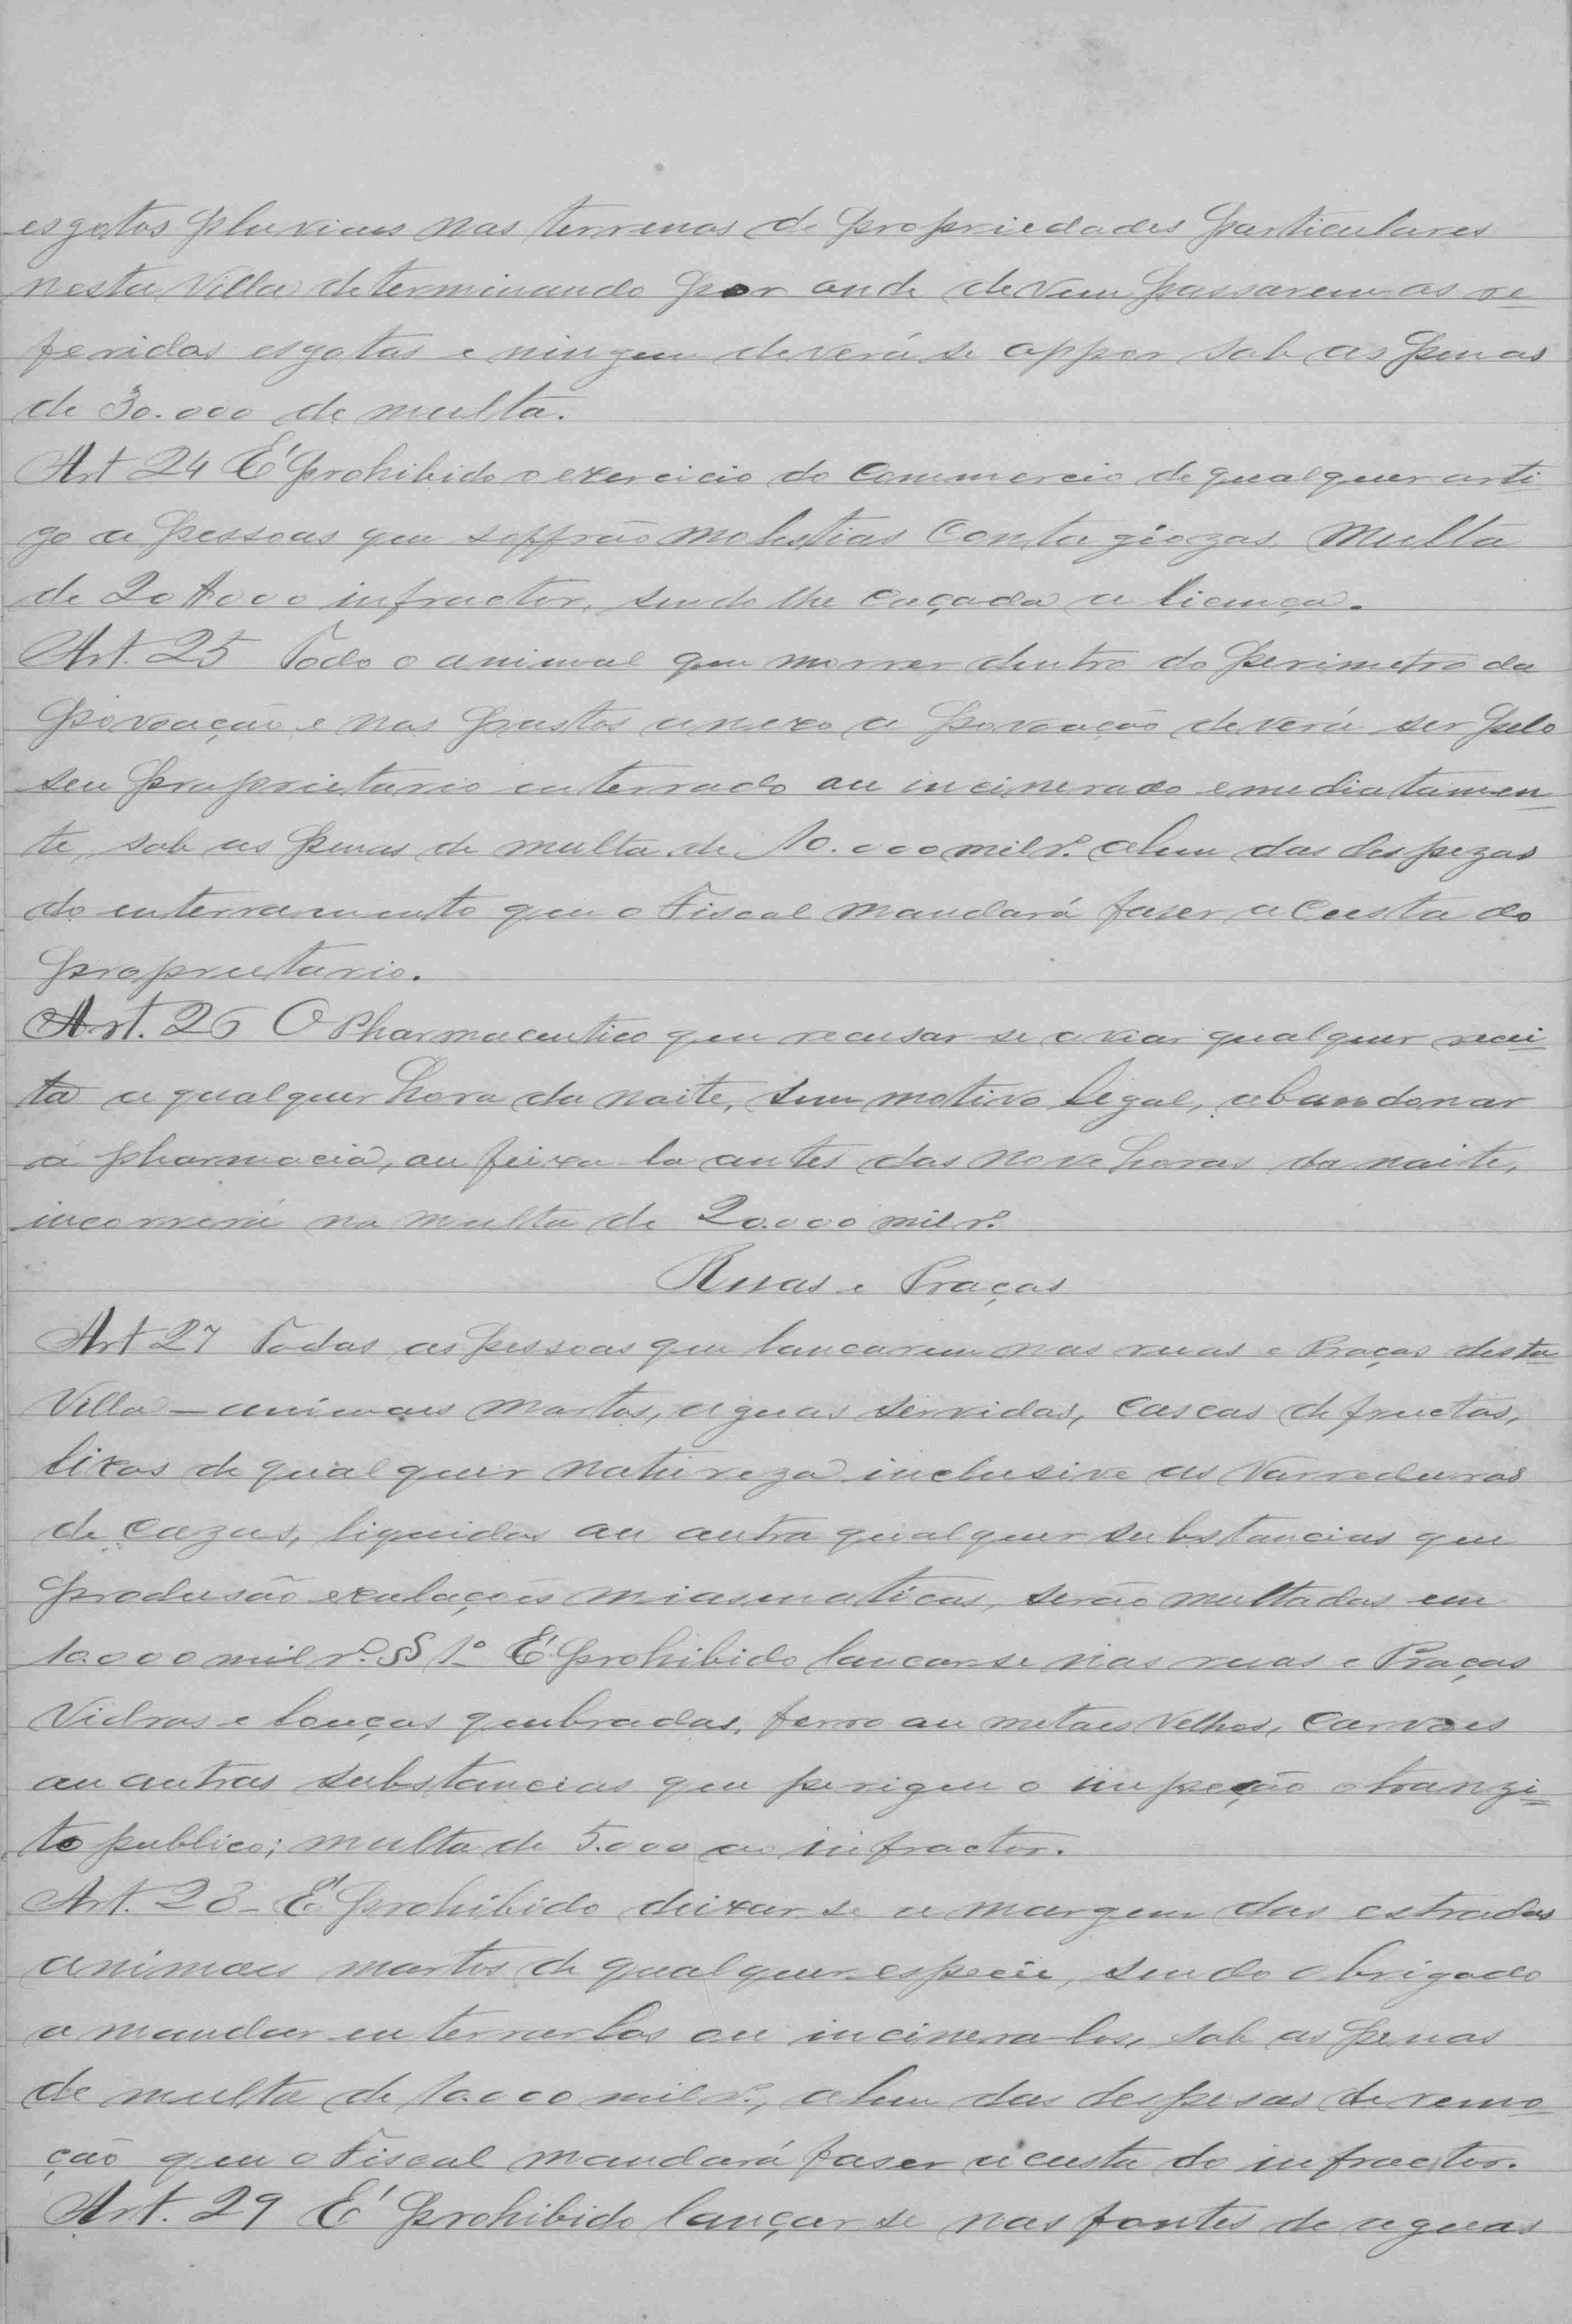 esgotos pluviaes nos terrenos de propriedades particulares
nesta Villa determinando por onde devem passarem os re=
feridos esgotos e ninguem deverá se oppor sob as penas
de 30.000 de multa.
Art 24 É prohibido o exercicio do Commercio de qualquer arti
go a pessoas que soffrão molestias Contagiozas. Multa
de 20$000 infractor, sendo lhe caçada a licença.
Art. 25 Todo o animal que morrer dentro do perimetro da
povoação e nos pastos anexo a povoação deverá ser pelo
seu proprietario enterrado ou incinerado emediatamen=
te, sob as penas de multa de 10.000 mil rs. alem das despezas
do enterramento que o Fiscal mandará faser a Custa do
proprietario.
Art. 26 O Pharmaceutico que recusar-se aviar qualquer recei=
ta a qualquer hora da noite, sem motivo legal, abandonar
a pharmacia, ou feixa la antes das nove horas da noite,
incorrerá na multa de 20.000 mil rs.
Ruas e Praças
Art 27 Todas as pessoas que lancarem nas ruas e Praças desta
Villa — animaes mortos, aguas servidas, cascas de fructas,
lixos de qualquer natureza inclusive as varreduras
de cazas, liquidos ou outra qualquer substancias que
produsão exalações miasmaticas, serão multadas em
10.000 mil rs. §§ 1º É prohibido lancar-se nas ruas e Praças
Vidros e louças quebradas, ferro ou metaes velhos, carvões
ou outras substancias que perigem o impeção o tranzi=
to publico; multa de 5.000 ao infractor.
Art. 28 - É prohibido deixar-se a margem das estradas
animaes mortos de qualquer especie, sendo obrigado
a mandar enterrar los ou incinera-los, sob as penas
de multa de 10.000 mil rs., alem das despesas de remo=
ção que o Fiscal mandará faser a custa do infractor.
Art. 29 É prohibido lançar se nas fontes de aguas